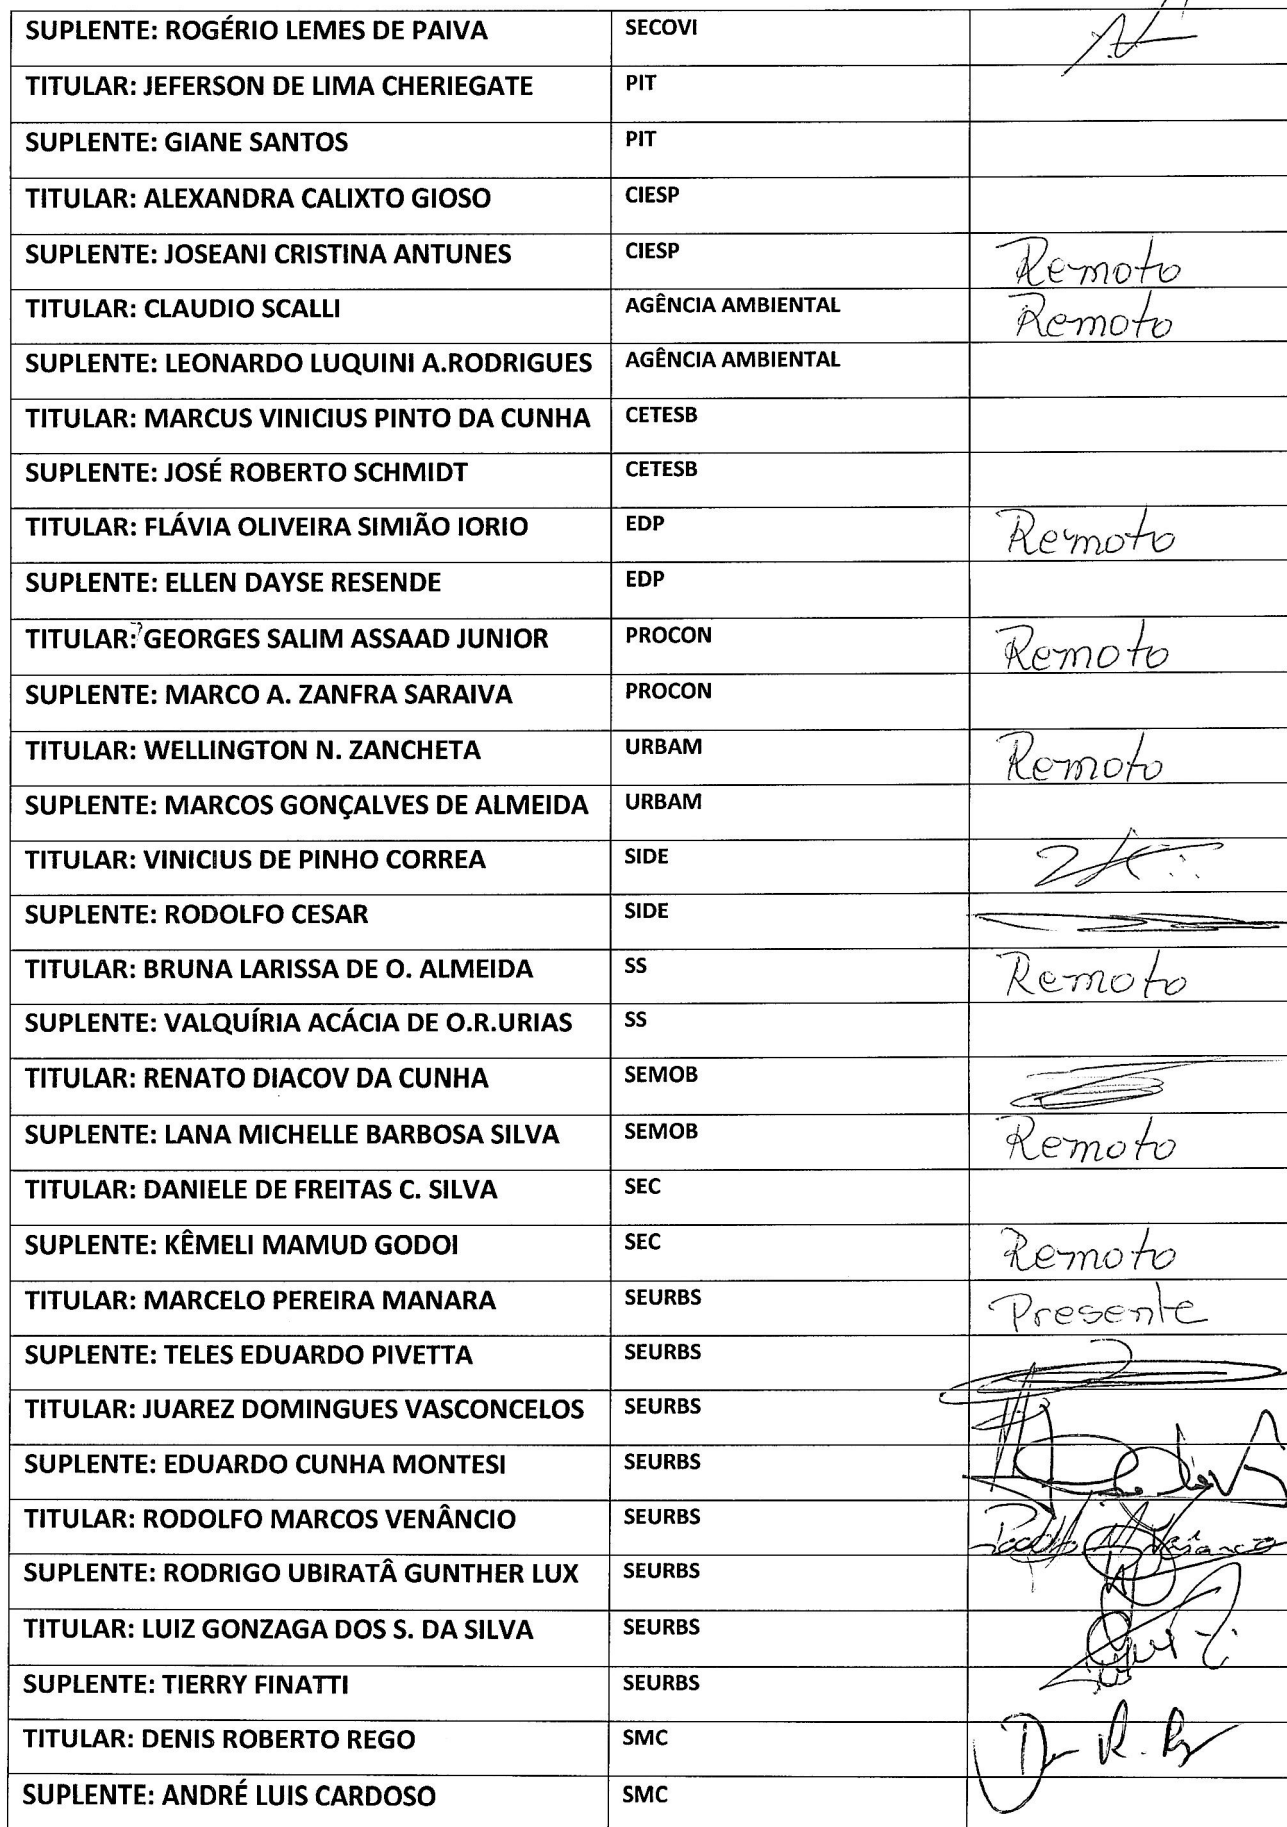 SUPLENTE: ROGÉRIO LEMES DE PAIVA SECOVI
TITULAR: JEFERSON DE LIMA CHERIEGATE PIT
SUPLENTE: GIANE SANTOS PIT
TITULAR: ALEXANDRA CALIXTO GIOSO CIESP
SUPLENTE: JOSEANI CRISTINA ANTUNES CIESP Remoto
TITULAR: CLAUDIO SCALLI AGÊNCIA AMBIENTAL Remoto
SUPLENTE: LEONARDO LUQUINI A.RODRIGUES AGÊNCIA AMBIENTAL
TITULAR: MARCUS VINICIUS PINTO DA CUNHA CETESB
SUPLENTE: JOSÉ ROBERTO SCHMIDT CETESB
TITULAR: FLÁVIA OLIVEIRA SIMIÃO IORIO EDP Remoto
SUPLENTE: ELLEN DAYSE RESENDE EDP
TITULAR: GEORGES SALIM ASSAAD JUNIOR PROCON Remoto
SUPLENTE: MARCO A. ZANFRA SARAIVA PROCON
TITULAR: WELLINGTON N. ZANCHETA URBAM Remoto
SUPLENTE: MARCOS GONÇALVES DE ALMEIDA URBAM
TITULAR: VINICIUS DE PINHO CORREA SIDE
SUPLENTE: RODOLFO CESAR SIDE
TITULAR: BRUNA LARISSA DE O. ALMEIDA SS Remoto
SUPLENTE: VALQUÍRIA ACÁCIA DE O.R.URIAS SS
TITULAR: RENATO DIACOV DA CUNHA SEMOB
SUPLENTE: LANA MICHELLE BARBOSA SILVA SEMOB Remoto
TITULAR: DANIELE DE FREITAS C. SILVA SEC
SUPLENTE: KÊMELI MAMUD GODOI SEC Remoto
TITULAR: MARCELO PEREIRA MANARA SEURBS Presente
SUPLENTE: TELES EDUARDO PIVETTA SEURBS
TITULAR: JUAREZ DOMINGUES VASCONCELOS SEURBS
SUPLENTE: EDUARDO CUNHA MONTESI SEURBS
TITULAR: RODOLFO MARCOS VENÂNCIO SEURBS
SUPLENTE: RODRIGO UBIRATÂ GUNTHER LUX SEURBS
TITULAR: LUIZ GONZAGA DOS S. DA SILVA SEURBS
SUPLENTE: TIERRY FINATTI SEURBS
TITULAR: DENIS ROBERTO REGO SMC
SUPLENTE: ANDRÉ LUIS CARDOSO SMC